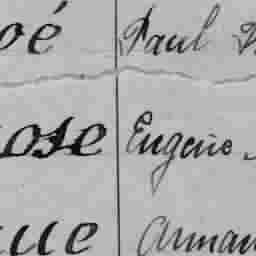 oé Paul
ose Eugene
que Arman